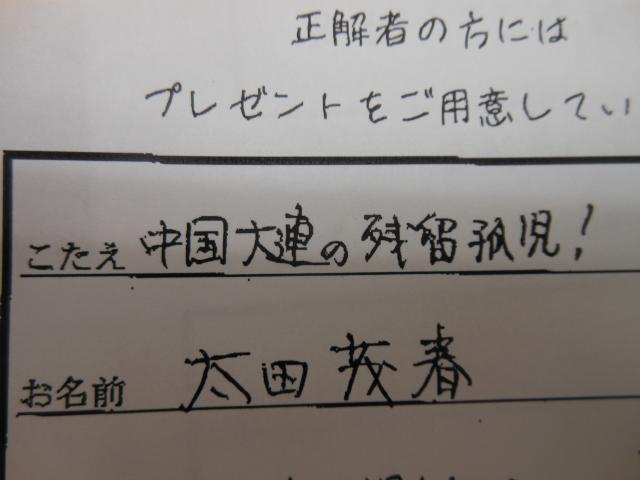 正解者の方には
プレゼントをご用意してい
こたえ 中国大連の残留孤児！
お名前 太田茂春